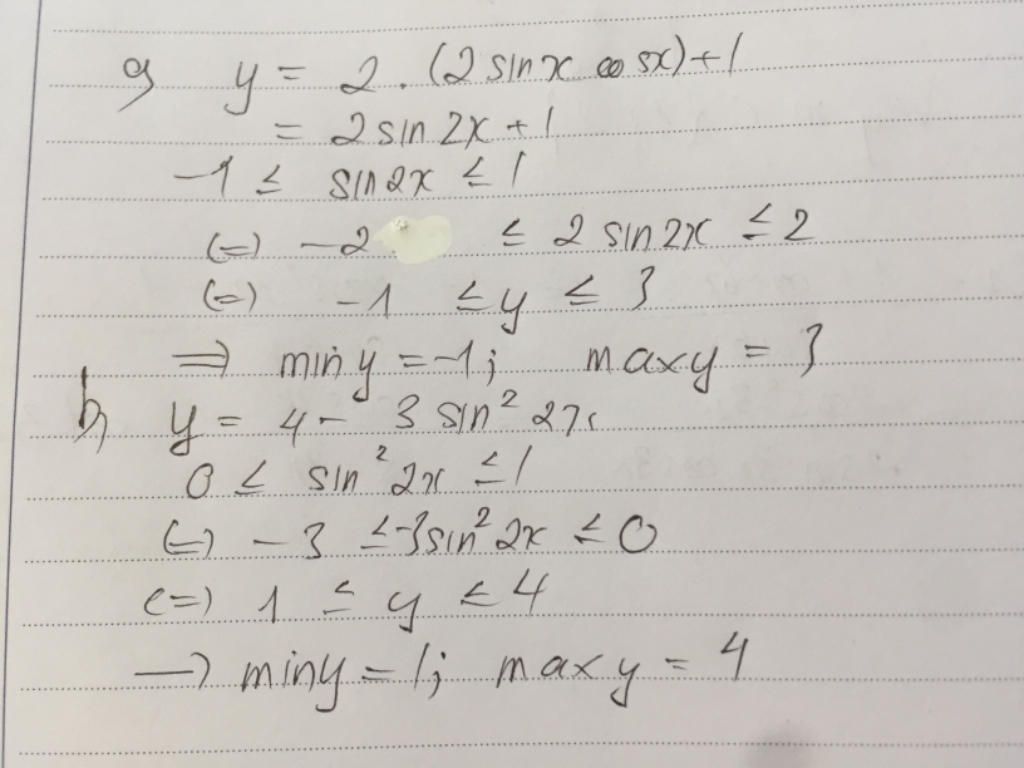 a, y = 2. (2 sin x cos x) + 1
= 2 sin 2x + 1
-1 ≤ sin 2x ≤ 1
(=) -2 ≤ 2 sin 2x ≤ 2
(=) -1 ≤ y ≤ 3
=> min y = -1; max y = 3
b, y = 4 - 3 sin² 2x
0 ≤ sin² 2x ≤ 1
(=) -3 ≤ -3 sin² 2x ≤ 0
(=) 1 ≤ y ≤ 4
→ min y = 1; max y = 4